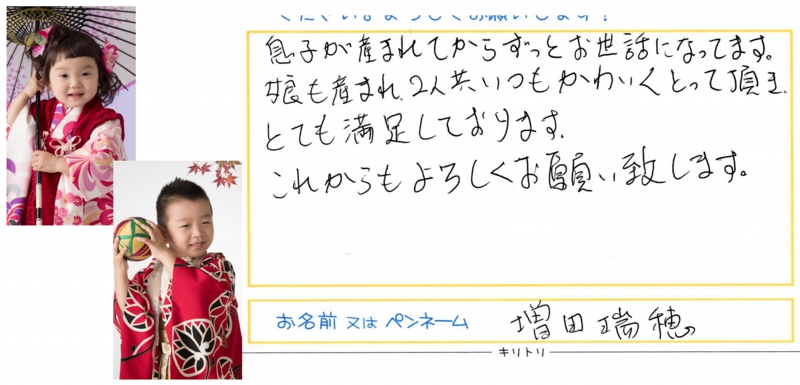 くださいますようよろしくお願いします！
息子が産まれてからずっとお世話になってます。
娘も産まれ、2人共いつもかわいくとって頂き、
とても満足しております。
これからもよろしくお願い致します。
お名前 又は ペンネーム 増田瑞穂
キリトリ